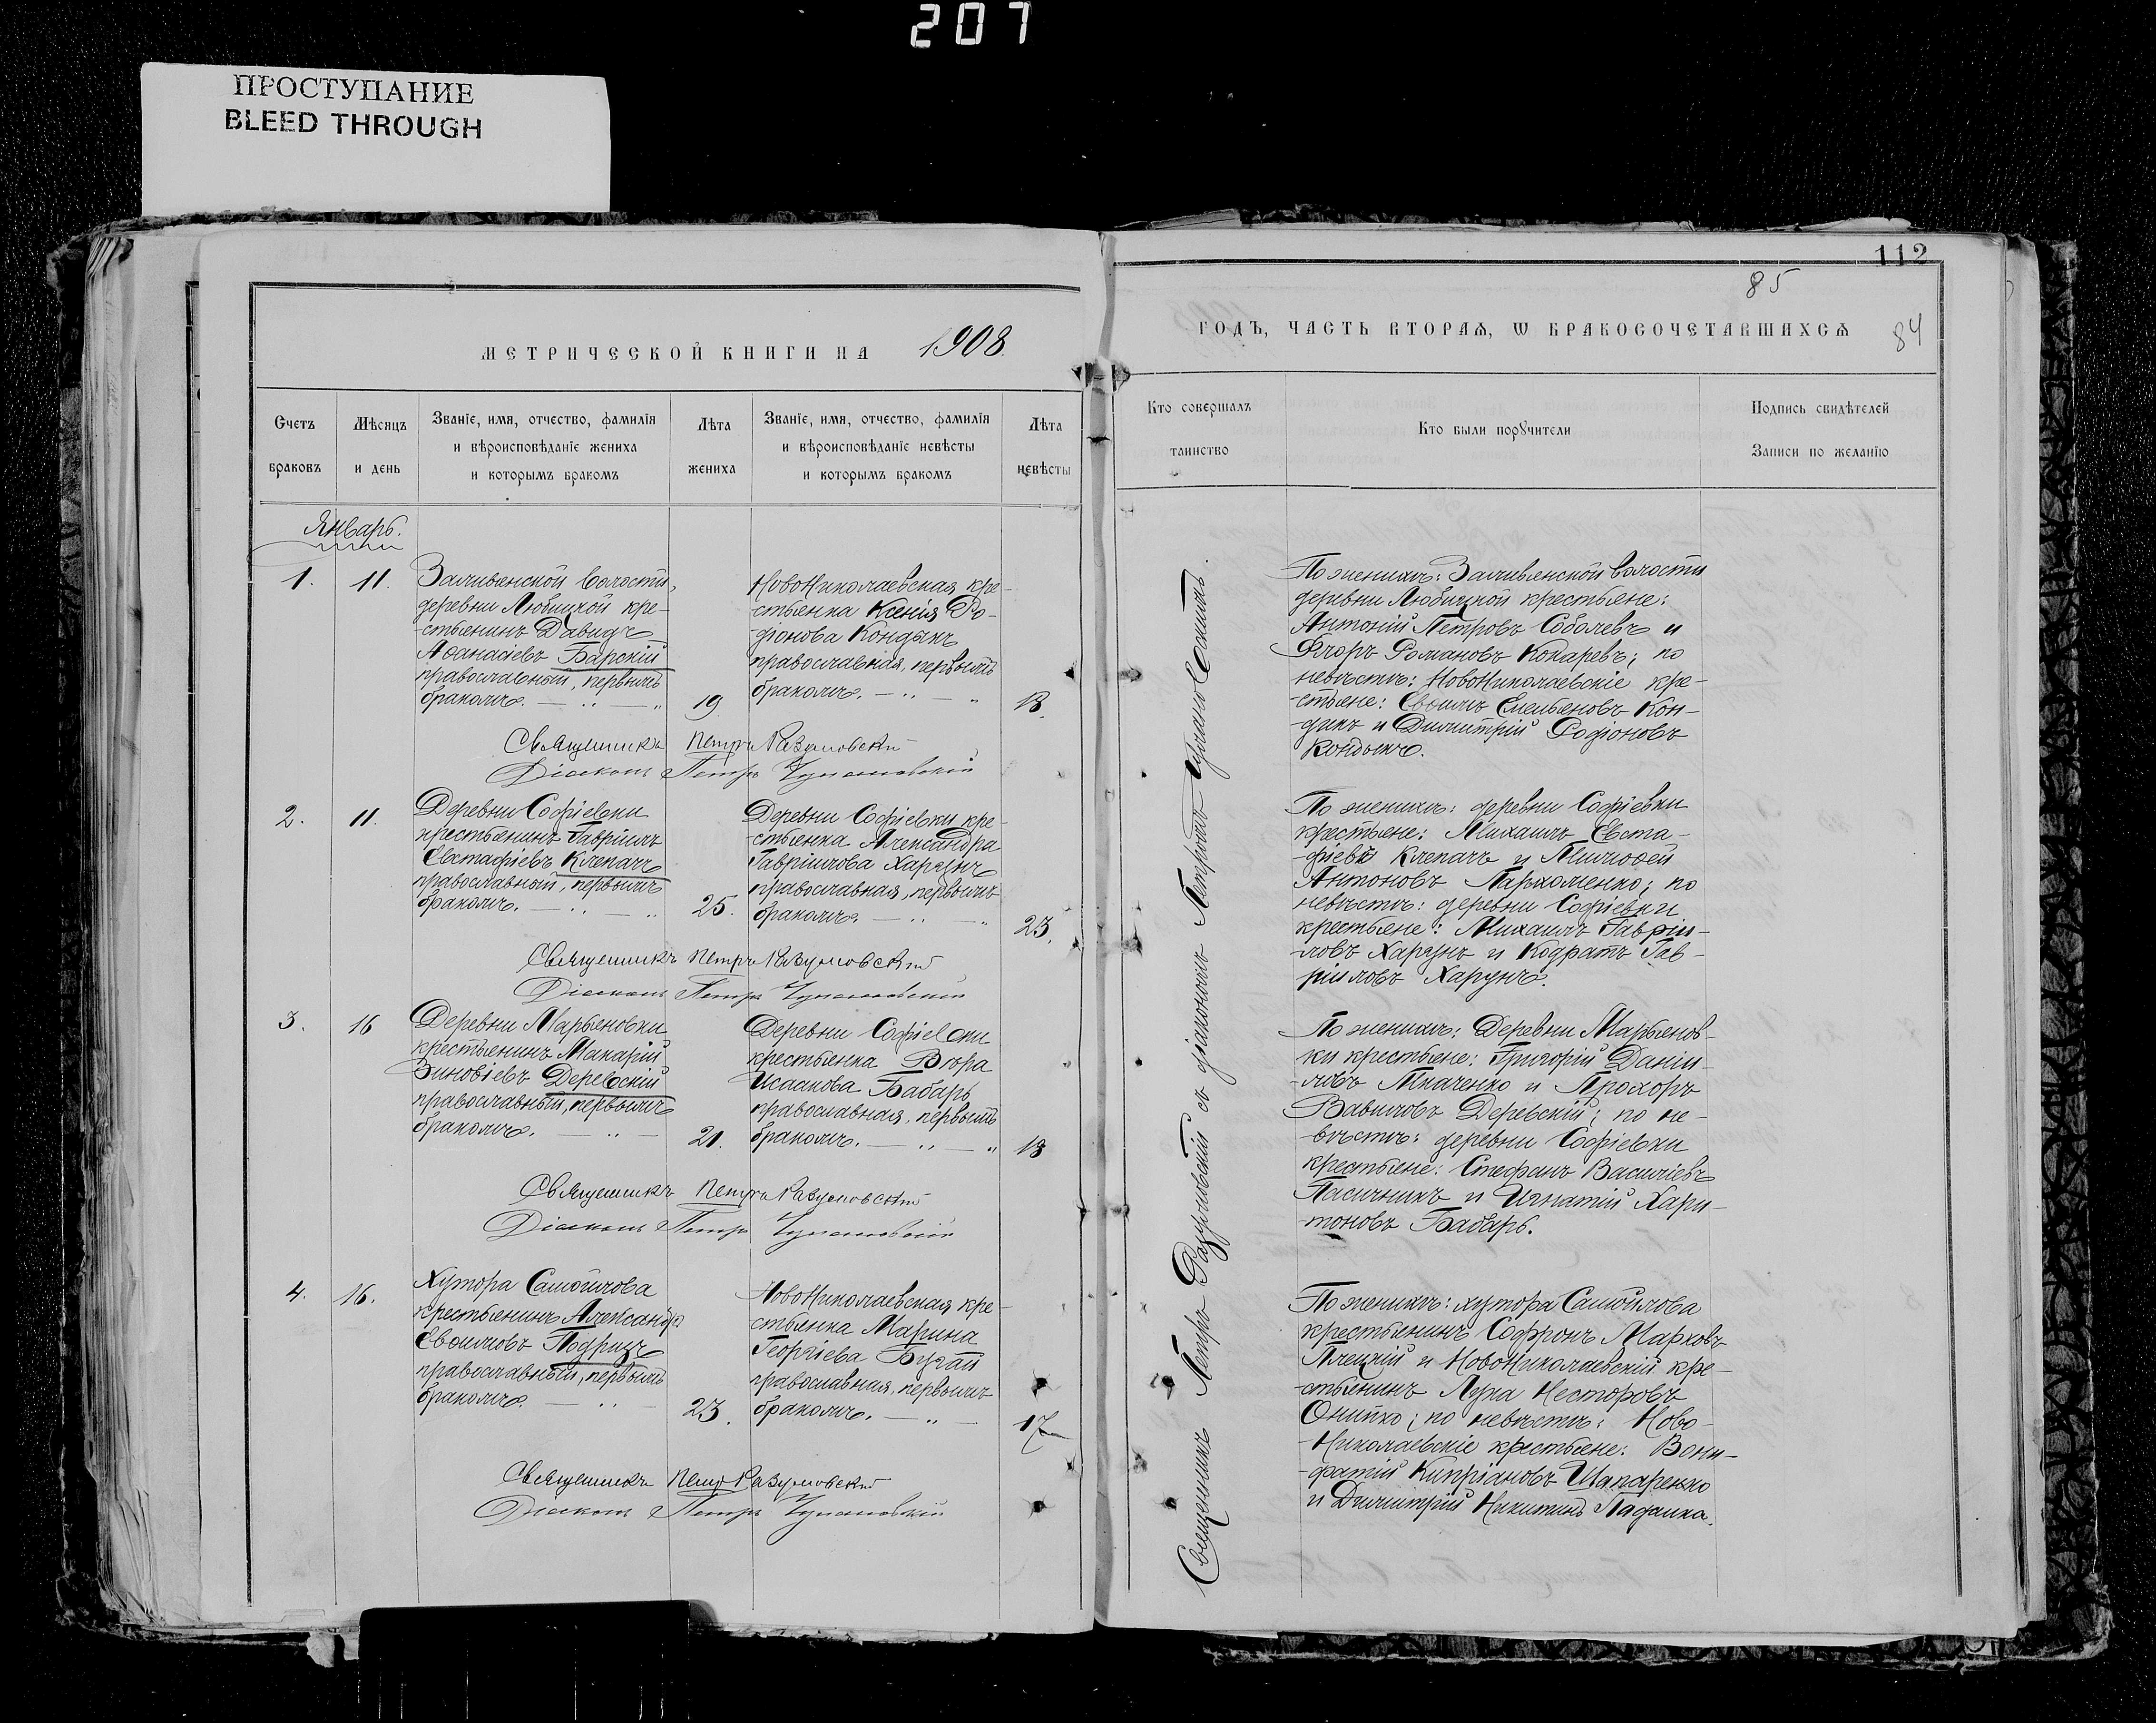 207
ПРОСТУПАНИЕ
BLEED THROUGH
МЕТРИЧЕСКОЙ КНИГИ НА 1908.
Счетъ браковъ
Мѣсяцъ и день
Званіе, имя, отчество, фамилія
и вѣроисповѣданіе жениха
и которымъ бракомъ
Лѣта жениха
Званіе, имя, отчество, фамилія
и вѣроисповѣданіе невѣсты
и которымъ бракомъ
Лѣта невѣсты
Январь.
1.
11.
Заливенской волости,
деревни Любицкой кре-
-стьянинъ Давидъ
Аѳанасіевъ Барскій
православный, первымъ
бракомъ.
19
НовоНиколаевская кре-
-стьянка Ксенія Ро-
-діонова Кондыкъ
православная, первымъ
бракомъ.
18.
Священникъ Петръ Разумовскій
Діаконъ Петръ
2.
11.
Деревни Софіевки
крестьянинъ Гавріилъ
Евстафіевъ Клепачъ
православный, первымъ
бракомъ.
25.
Деревни Софіевки кре-
-стьянка Александра
Гавріилова Харунъ
православная, первымъ
бракомъ.
23.
Священникъ Петръ Разумовскій
Діаконъ Петръ
3.
16
Деревни Марьяновки
крестьянинъ Макарій
Зиновіевъ Деревскій
православный, первымъ
бракомъ.
21.
Деревни Софіевки
крестьянка Вѣра
Исаакова Бабарь
православная, первымъ
бракомъ.
18
Священникъ Петръ Разумовскій
Діаконъ Петръ
4.
16.
Хутора Самойлова
крестьянинъ Александръ
Евѳимовъ Подризъ
православный, первымъ
бракомъ.
23.
НовоНиколаевская кре-
стьянка Марина
Георгіева Бугай
православная, первымъ
бракомъ.
17
Священникъ Петръ Разумовскій
Діаконъ Петръ
112
85
84
ГОДЪ, ЧАСТЬ ВТОРАЯ, Ѡ БРАКОСОЧЕТАВШИХСЯ
Кто совершалъ
таинство
Кто были порꙋчители
Подпись свидѣтелей
Записи по желанію
Священникъ Петръ Разумовскій съ діакономъ Петромъ
По женихѣ: Заливенской волости
деревни Любицкой крестьяне:
Антоній Петровъ Соболевъ и
Флоръ Романовъ Кокаревъ; по
невѣстѣ: НовоНиколаевскіе кре-
-стьяне: Евѳимъ Емельяновъ Кон-
-дыкъ и Димитрій Родіоновъ
Кондыкъ.
По женихѣ: деревни Софіевки
крестьяне: Михаилъ Евста-
-фіевъ Клепачъ и Тимоѳей
Антоновъ Пархоменко; по
невѣстѣ: деревни Софіевки
крестьяне: Михаилъ Гавріи-
-ловъ Харунъ и Кодратъ Гав-
ріиловъ Харунъ.
По женихѣ: Деревни Марьянов-
ки крестьяне: Григорій Даніи-
-ловъ Ткаченко и Прохоръ
Вавиловъ Деревскій; по не-
-вѣстѣ: деревни Софіевки
крестьяне: Стефанъ Василіевъ
Пасичникъ и Игнатій Хари-
-тоновъ Бабарь.
По женихѣ: хутора Самойлова
крестьянинъ Софронъ Марковъ
Плецкій и НовоНиколаевскій кре-
-стьянинъ Лука Несторовъ
Онипко; по невѣстѣ: Ново-
-Николаевскіе крестьяне: Вони-
-фатій Кипріановъ Шапаренко
и Димитрій Никитинъ Ладанка.